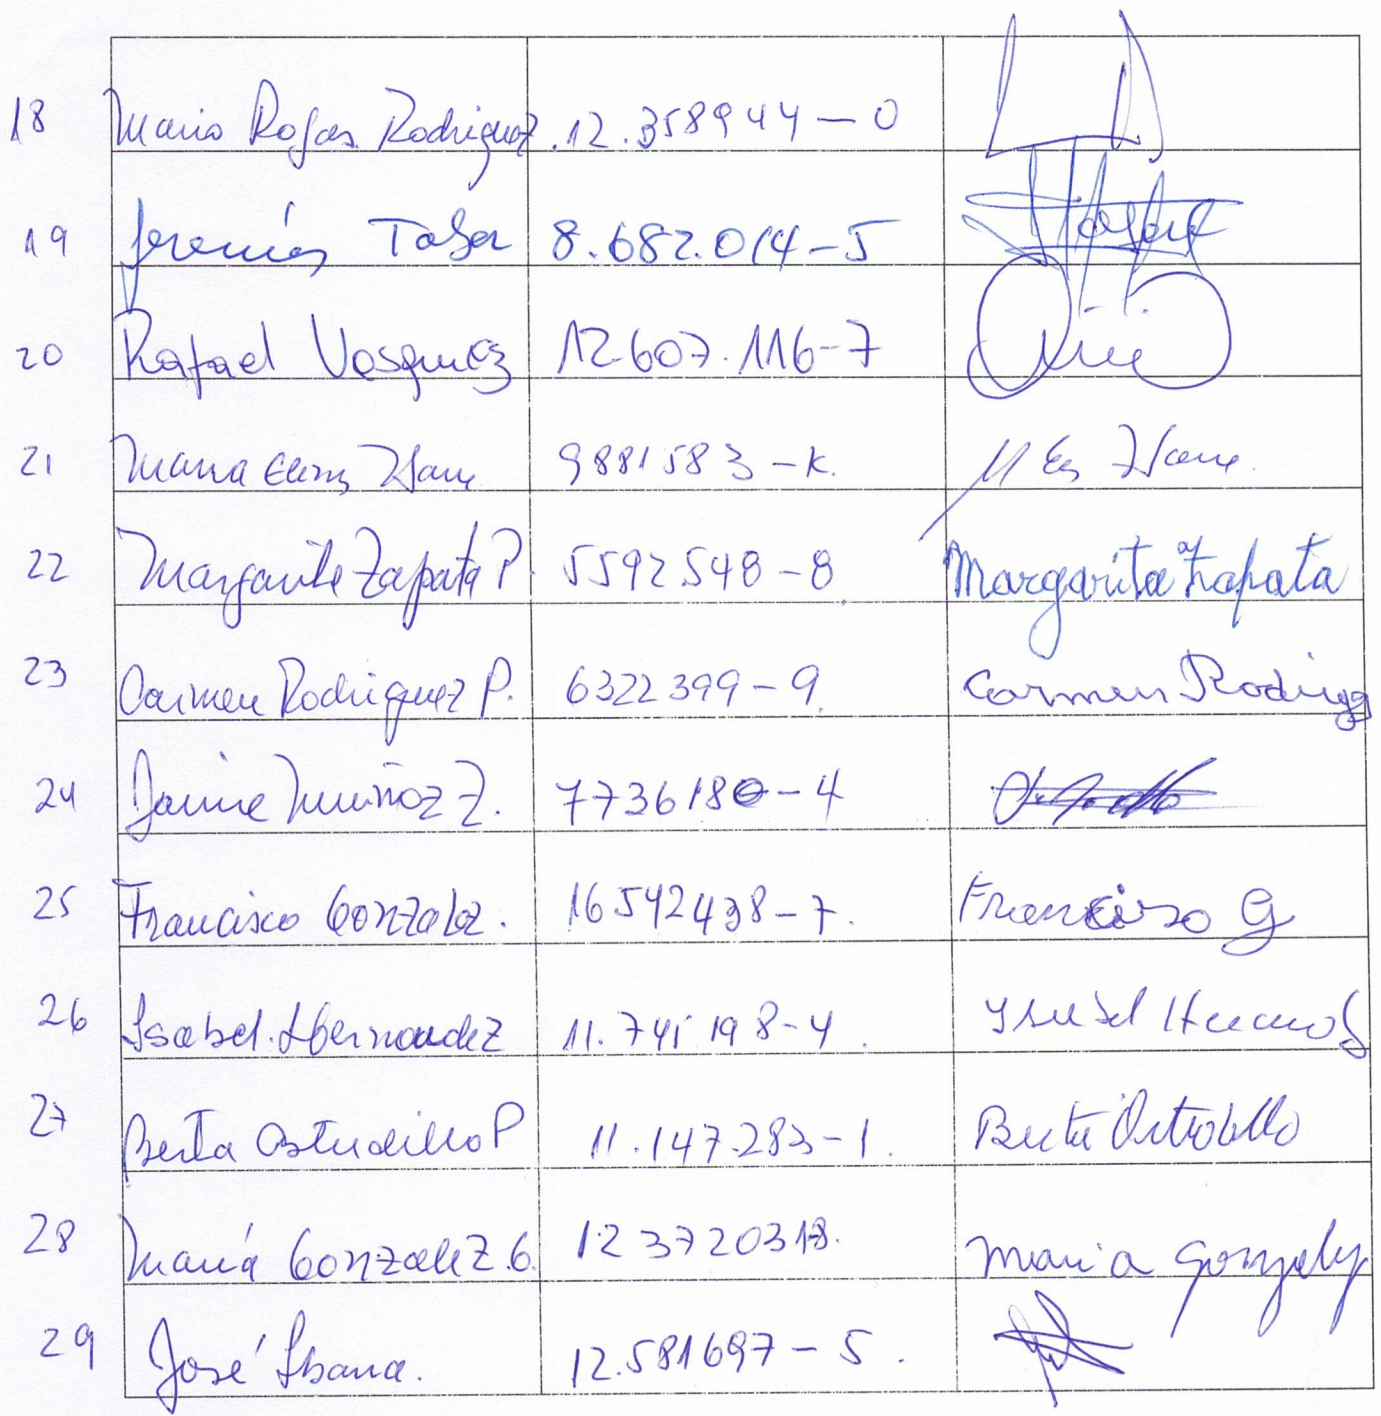 18 Mario Rojas Rodriguez. 12.358944-0
19 Jeremías Tobar 8.682.014-5
20 Rafael Vasquez 12.607.116-7
21 Maria 9881583-K.
22 Margarita Zapata P. 5592548-8 Margarita Zapata
23 Carmen Rodriguez P. 6322399-9. Carmen Rodrigz
24 Jaime Muñoz Z. 7736180-4
25 Francisco Gonzalez. 16542438-7. Francisco G
26 Isabel. Hernandez 11.741198-4.
27 Berta Astudillo P 11.147.283-1. Berta
28 María Gonzalez.G. 12372031 Maria Gonzalez
29 José 12.581697-5.